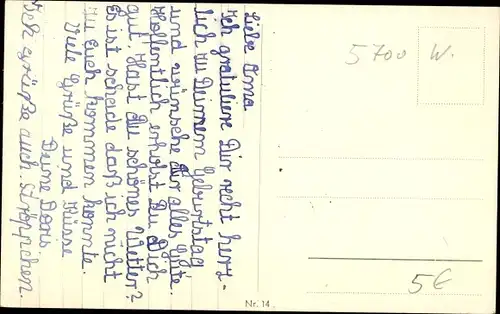 Liebe Oma
Ich gratuliere Dir recht herz-
lich zu Deinem Geburtstag
und wünsche Dir alles Gute.
Hoffentlich erholst Du Dich
gut. Hast du schönes Wetter?
Es ist scheide daß ich nicht
zu Euch kommen konnte.
Viele Grüße und Küsse
Deine Doris
Ich grüße auch Ströppchen.
5700 W.
5€
Nr. 14